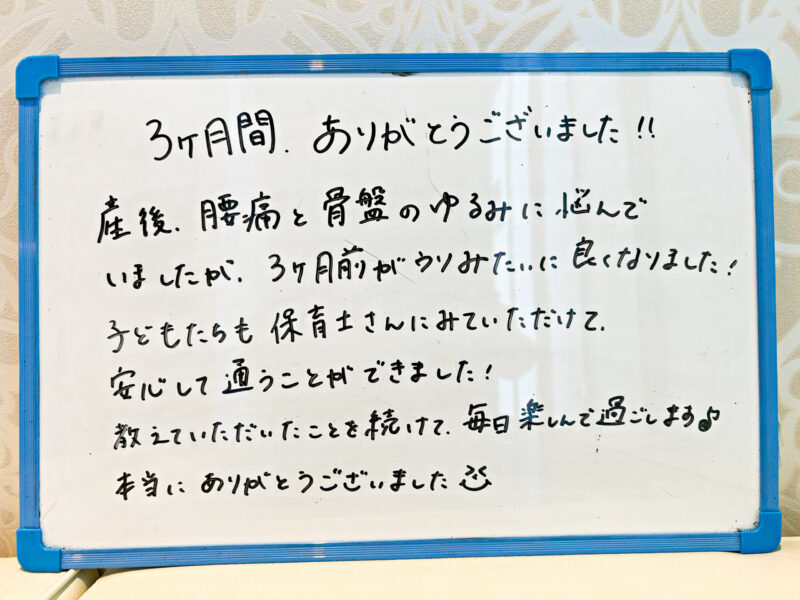 3ヶ月間、ありがとうございました!!
産後、腰痛と骨盤のゆるみに悩んで
いましたが、3ヶ月前がウソみたいに良くなりました!
子どもたちも保育士さんにみていただけて、
安心して通うことができました!
教えていただいたことを続けて、毎日楽しんで過ごします♪
本当にありがとうございました